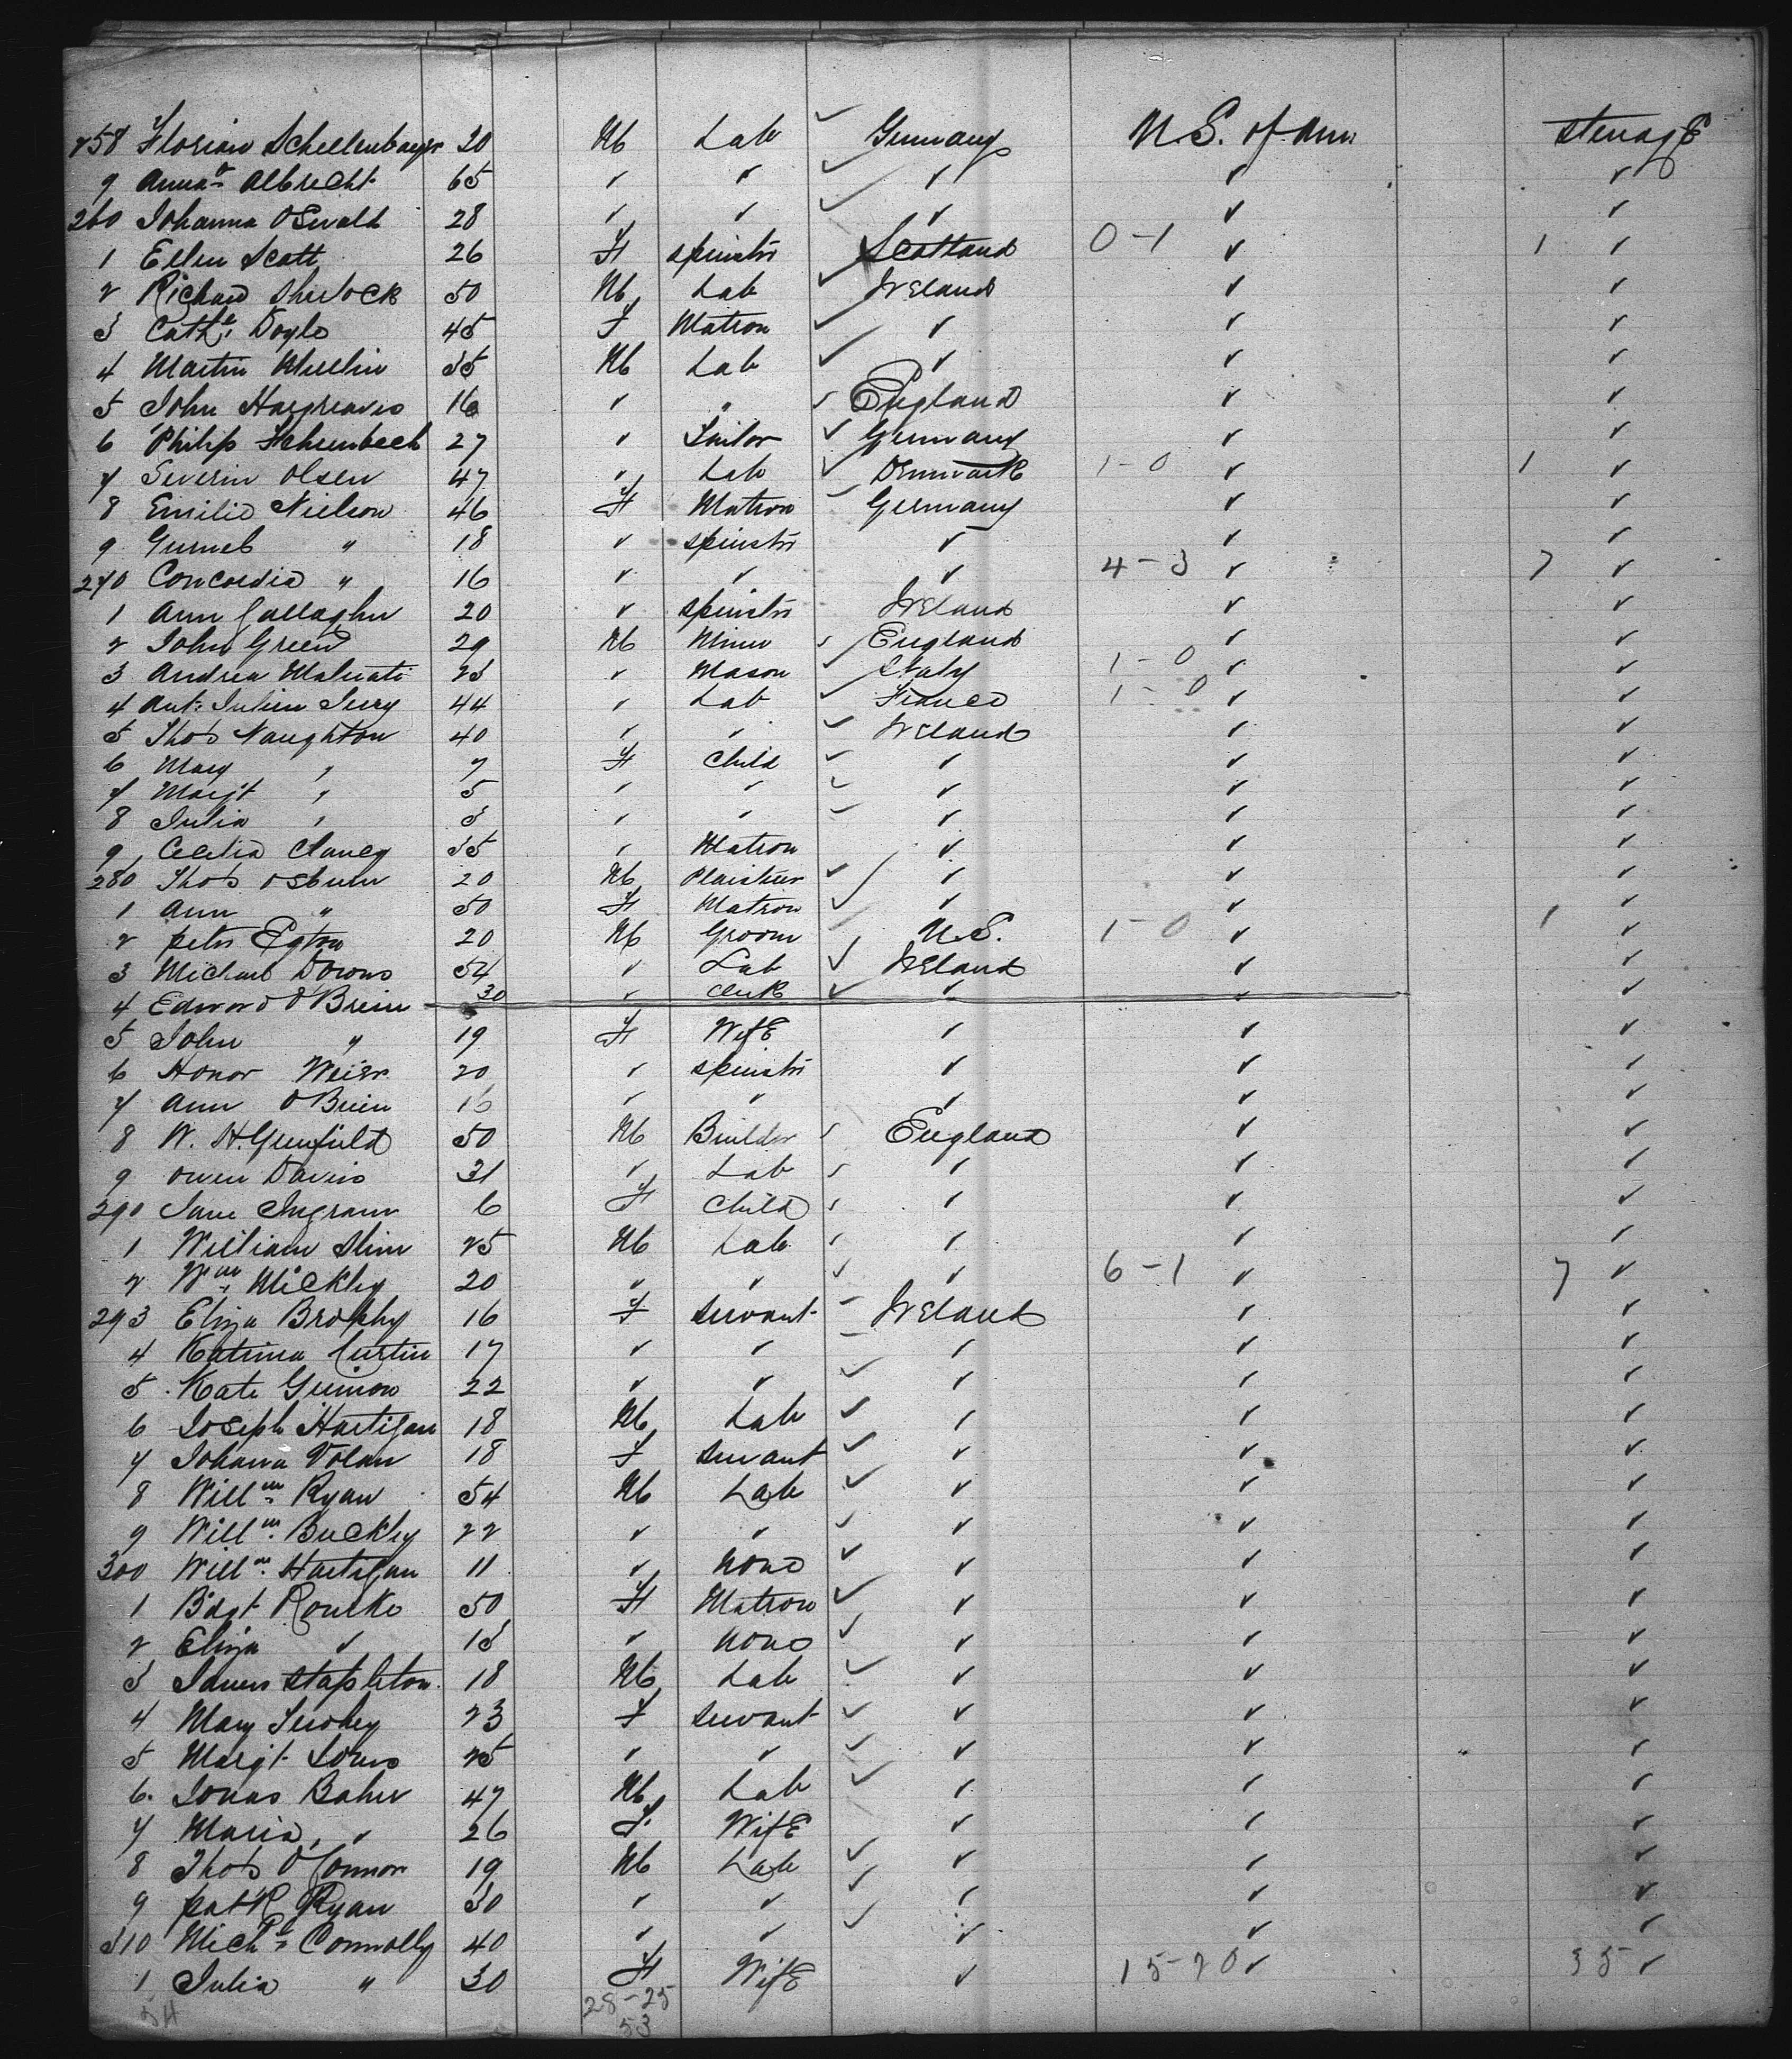 258 Florian Schellenbayer 20 M Lab ✓ Germany U.S. of Am. Steerage
9 Anna Albrecht 65 ✓ ✓ ✓ ✓ ✓ ✓
260 Johanna Oswald 28 ✓ ✓ ✓ ✓ ✓ ✓
1 Ellen Scott 26 F Spinster Scotland 0-1 ✓ 1 ✓
2 Richard Sherlock 50 M Lab ✓ Ireland ✓ ✓
3 Cathe. Doyle 45 F Matron ✓ ✓ ✓ ✓
4 Martin Mullin 35 M Lab ✓ ✓ ✓ ✓
5 John Hargreaves 16 ✓ " ✓ England ✓ ✓
6 Philip 27 ✓ Tailor ✓ Germany ✓ ✓
7 Severin Olsen 47 ✓ Lab ✓ Denmark 1-0 ✓ 1 ✓
8 Emilie Nielson 46 F Matron Germany ✓ ✓
9 " 18 ✓ Spinster ✓ ✓ ✓
270 Concordia " 16 ✓ ✓ ✓ 4-3 ✓ 7 ✓
1 Ann Gallagher 20 ✓ Spinster Ireland ✓ ✓
2 John Green 29 M Miner ✓ England ✓ ✓
3 Andrea 23 ✓ Mason ✓ Italy 1-0 ✓ ✓
4 Ant. Julien 44 ✓ Lab ✓ France 1-0 ✓ ✓
5 Thos Naughton 40 ✓ ✓ ✓ Ireland ✓ ✓
6 Mary " 7 F Child ✓ ✓ ✓ ✓
7 Margt " 5 ✓ ✓ ✓ ✓ ✓ ✓
8 Julia " 3 ✓ ✓ ✓ ✓ ✓ ✓
9 Cecelia Clancy 35 ✓ Matron ✓ ✓ ✓
280 Thos Osburn 20 M Plaisterer ✓ ✓ ✓ ✓
1 Ann " 50 F Matron ✓ ✓ ✓ ✓
2 Peter Egton 20 M Groom U.S. 1-0 ✓ 1 ✓
3 Michael Downs 54 ✓ Lab ✓ Ireland ✓ ✓
4 Edward O'Brien 30 ✓ Clerk ✓ ✓ ✓ ✓
5 John " 19 F Wife ✓ ✓ ✓
6 Honor Weir 20 ✓ Spinster ✓ ✓ ✓
7 Ann O'Brien 16 ✓ ✓ ✓ ✓ ✓
8 W. H. Greenfield 50 M Builder ✓ England ✓ ✓
9 Owen Davies 31 ✓ Lab ✓ ✓ ✓ ✓
290 Jane Ingram 6 F Child ✓ ✓ ✓ ✓
1 William Slim 25 M Lab ✓ ✓ ✓ ✓
2 Wm Mickley 20 ✓ ✓ ✓ ✓ 6-1 ✓ 7 ✓
293 Eliza Brophy 16 F Servant Ireland ✓ ✓
4 Katrina Curtin 17 ✓ ✓ ✓ ✓ ✓
5 Kate 22 ✓ ✓ ✓ ✓ ✓ ✓
6 Joseph Hartigan 18 M Lab ✓ ✓ ✓ ✓
7 Johana Dolan 18 F Servant ✓ ✓ ✓ ✓
8 Willm Ryan 54 M Lab ✓ ✓ ✓ ✓
9 Willm Buckley 22 ✓ ✓ ✓ ✓ ✓ ✓
300 Willm Hartigan 11 ✓ None ✓ ✓ ✓ ✓
1 Bdgt Rourke 50 F Matron ✓ ✓ ✓ ✓
2 Eliza ✓ 13 ✓ None ✓ ✓ ✓ ✓
3 James Stapleton 18 M Lab ✓ ✓ ✓ ✓
4 Mary 23 F Servant ✓ ✓ ✓ ✓
5 Margt 25 ✓ ✓ ✓ ✓ ✓ ✓
6 Jonas Baher 47 M Lab ✓ ✓ ✓ ✓
7 Maria ✓ 26 F Wife ✓ ✓ ✓
8 Thos O'Connor 19 M Lab ✓ ✓ ✓ ✓
9 Patk Ryan 30 ✓ ✓ ✓ ✓ ✓ ✓
310 Michl Connolly 40 ✓ ✓ ✓ ✓ ✓ ✓
1 Julia " 30 F Wife ✓ 15-20 ✓ 35 ✓
54 28-25
53